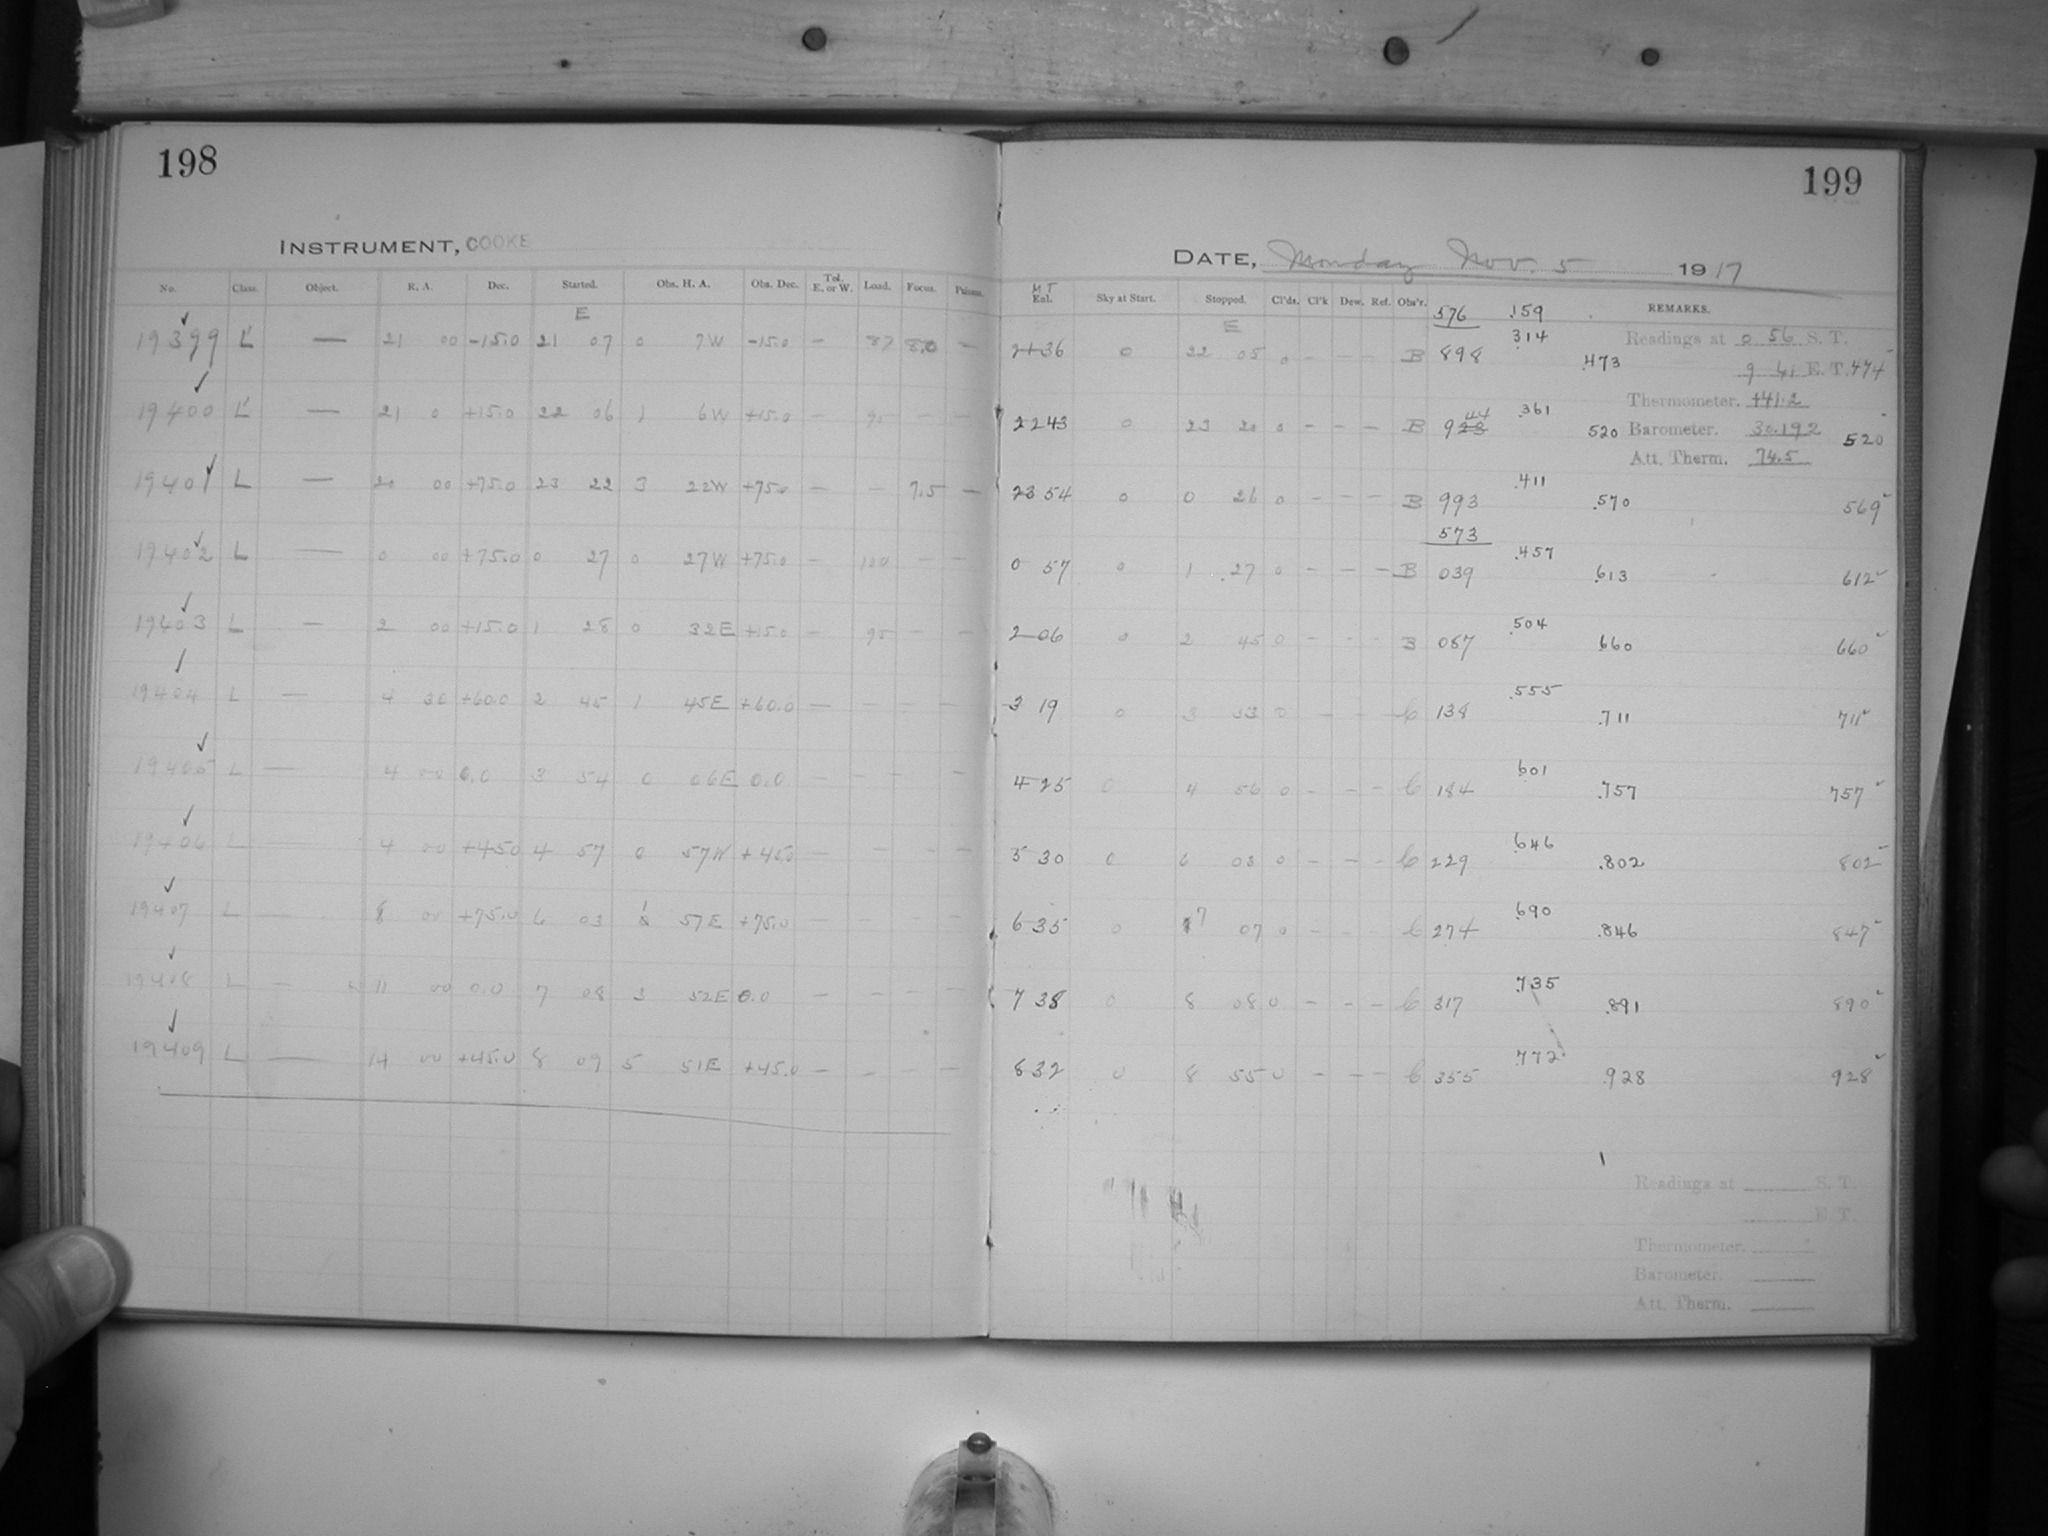 198
INSTRUMENT, COOKE
No. Class. Object. R. A. Dec. Started. Obs. H. A. Obs. Dec. Tel. E. or W. Load. Focus.
E
19399 L — 21 00 -15.0 21 07 0 7W -15.0 — 87 8.0 —
19400 L — 21 0 +15.0 22 06 1 6W +15.0 — 95 — —
19401 L — 20 00 +75.0 23 22 3 22W +75.0 — — 7.5 —
19402 L — 0 00 +75.0 0 27 0 27W +75.0 — 100 — —
19403 L — 2 00 +15.0 1 28 0 32E +15.0 — 95 — —
19404 L — 4 30 +60.0 2 45 1 45E +60.0 — — — —
19405 L — 4 00 0.0 3 54 0 06E 0.0 — — — —
19406 L — 4 00 +45.0 4 57 0 57W +45.0 — — — —
19407 L — 8 00 +75.0 6 03 1 57E +75.0 — —
19408 L — 11 00 0.0 7 08 3 52E 0.0 — — — —
19409 L — 14 00 +45.0 8 09 5 51E +45.0 — — — —
199
DATE, Monday Nov. 5 1917
M T
Exl. Sky at Start. Stopped. Cl'ds. Cl'k Dew. Ref. Obs'r. 576 .159 REMARKS.
E
21 36 0 22 05 0 — — — B 898 .314 .473
Readings at 0 56 S. T.
9 41 E. T. 474
Thermometer. +41.2
22 43 0 23 20 0 — — — B 923 44 .361 520 Barometer. 30.192 520
Att. Therm. 74.5
23 54 0 0 26 0 — — — B 993 .411 .570 569
573
0 57 0 1 27 0 — — — B 039 .457 .613 612
2 06 0 2 45 0 — — — B 087 .504 .660 660
3 19 0 3 53 0 — — — C 138 .555 .711 711
4 25 0 4 56 0 — — — C 184 .601 .757 757
5 30 0 6 03 0 — — — C 229 .646 .802 802
6 35 0 7 07 0 — — — C 274 .690 .846 847
7 38 0 8 08 0 — — — C 317 .735 .891 890
8 32 0 8 55 0 — — — C 355 .772 .928 928
Readings at S. T.
E. T.
Thermometer.
Barometer.
Att. Therm.